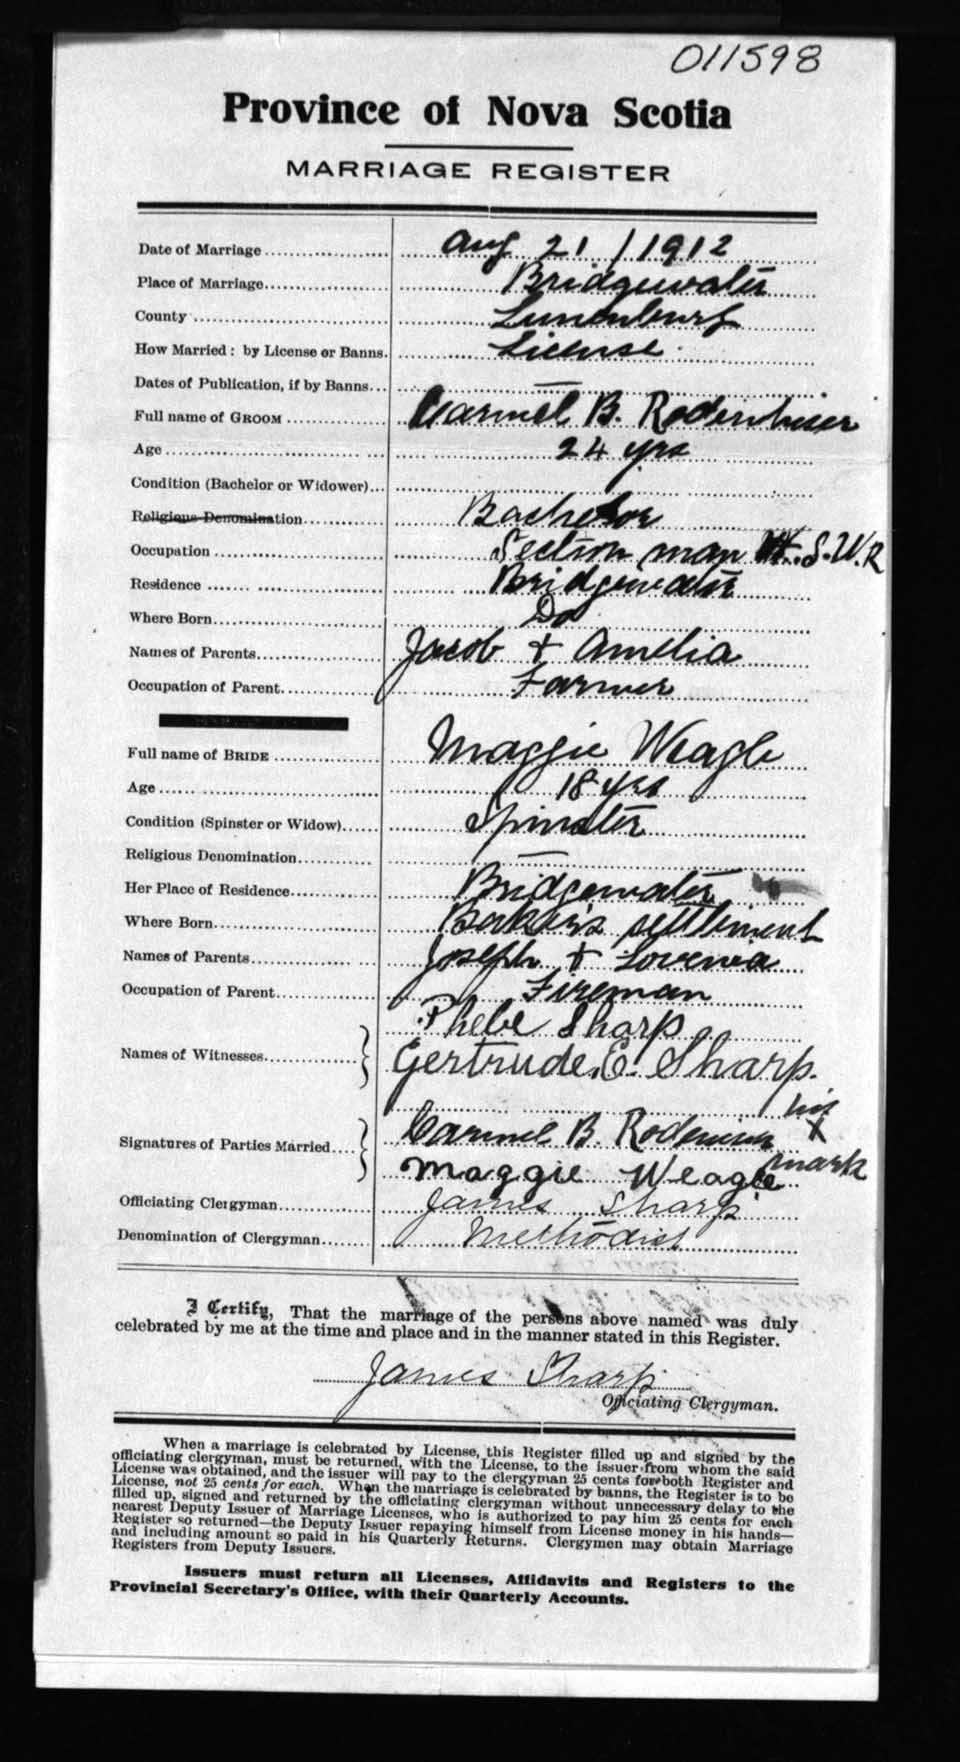 011598
Province of Nova Scotia
MARRIAGE REGISTER
Date of Marriage Aug 21 / 1912
Place of Marriage Bridgewater
County Lunenburg
How Married: by License or Banns. License
Dates of Publication, if by Banns —
Full name of GROOM Carmel B. Rodenhiser
Age 24 yrs
Condition (Bachelor or Widower)
Religious Denomination Bachelor
Occupation Section man H. S. W. R
Residence Bridgewater
Where Born Do
Names of Parents Jacob + Amelia
Occupation of Parent Farmer
Full name of BRIDE Maggie Weagle
Age 18 yrs
Condition (Spinster or Widow) Spinster
Religious Denomination —
Her Place of Residence Bridgewater
Where Born Baker's settlement
Names of Parents Joseph + Lovenia
Occupation of Parent Fireman
Phebe Sharp
Names of Witnesses Gertrude E. Sharp.
his
Signatures of Parties Married Carmel B. Rodeniser X
Maggie Weagle mark
Officiating Clergyman James Sharp
Denomination of Clergyman Methodist
I Certify, That the marriage of the persons above named was duly
celebrated by me at the time and place and in the manner stated in this Register.
James Sharp
Officiating Clergyman.
When a marriage is celebrated by License, this Register filled up and signed by the
officiating clergyman, must be returned, with the License, to the issuer from whom the said
License was obtained, and the issuer will pay to the clergyman 25 cents for both Register and
License, not 25 cents for each. When the marriage is celebrated by banns, the Register is to be
filled up, signed and returned by the officiating clergyman without unnecessary delay to the
nearest Deputy Issuer of Marriage Licenses, who is authorized to pay him 25 cents for each
Register so returned—the Deputy Issuer repaying himself from License money in his hands—
and including amount so paid in his Quarterly Returns. Clergymen may obtain Marriage
Registers from Deputy Issuers.
Issuers must return all Licenses, Affidavits and Registers to the
Provincial Secretary's Office, with their Quarterly Accounts.